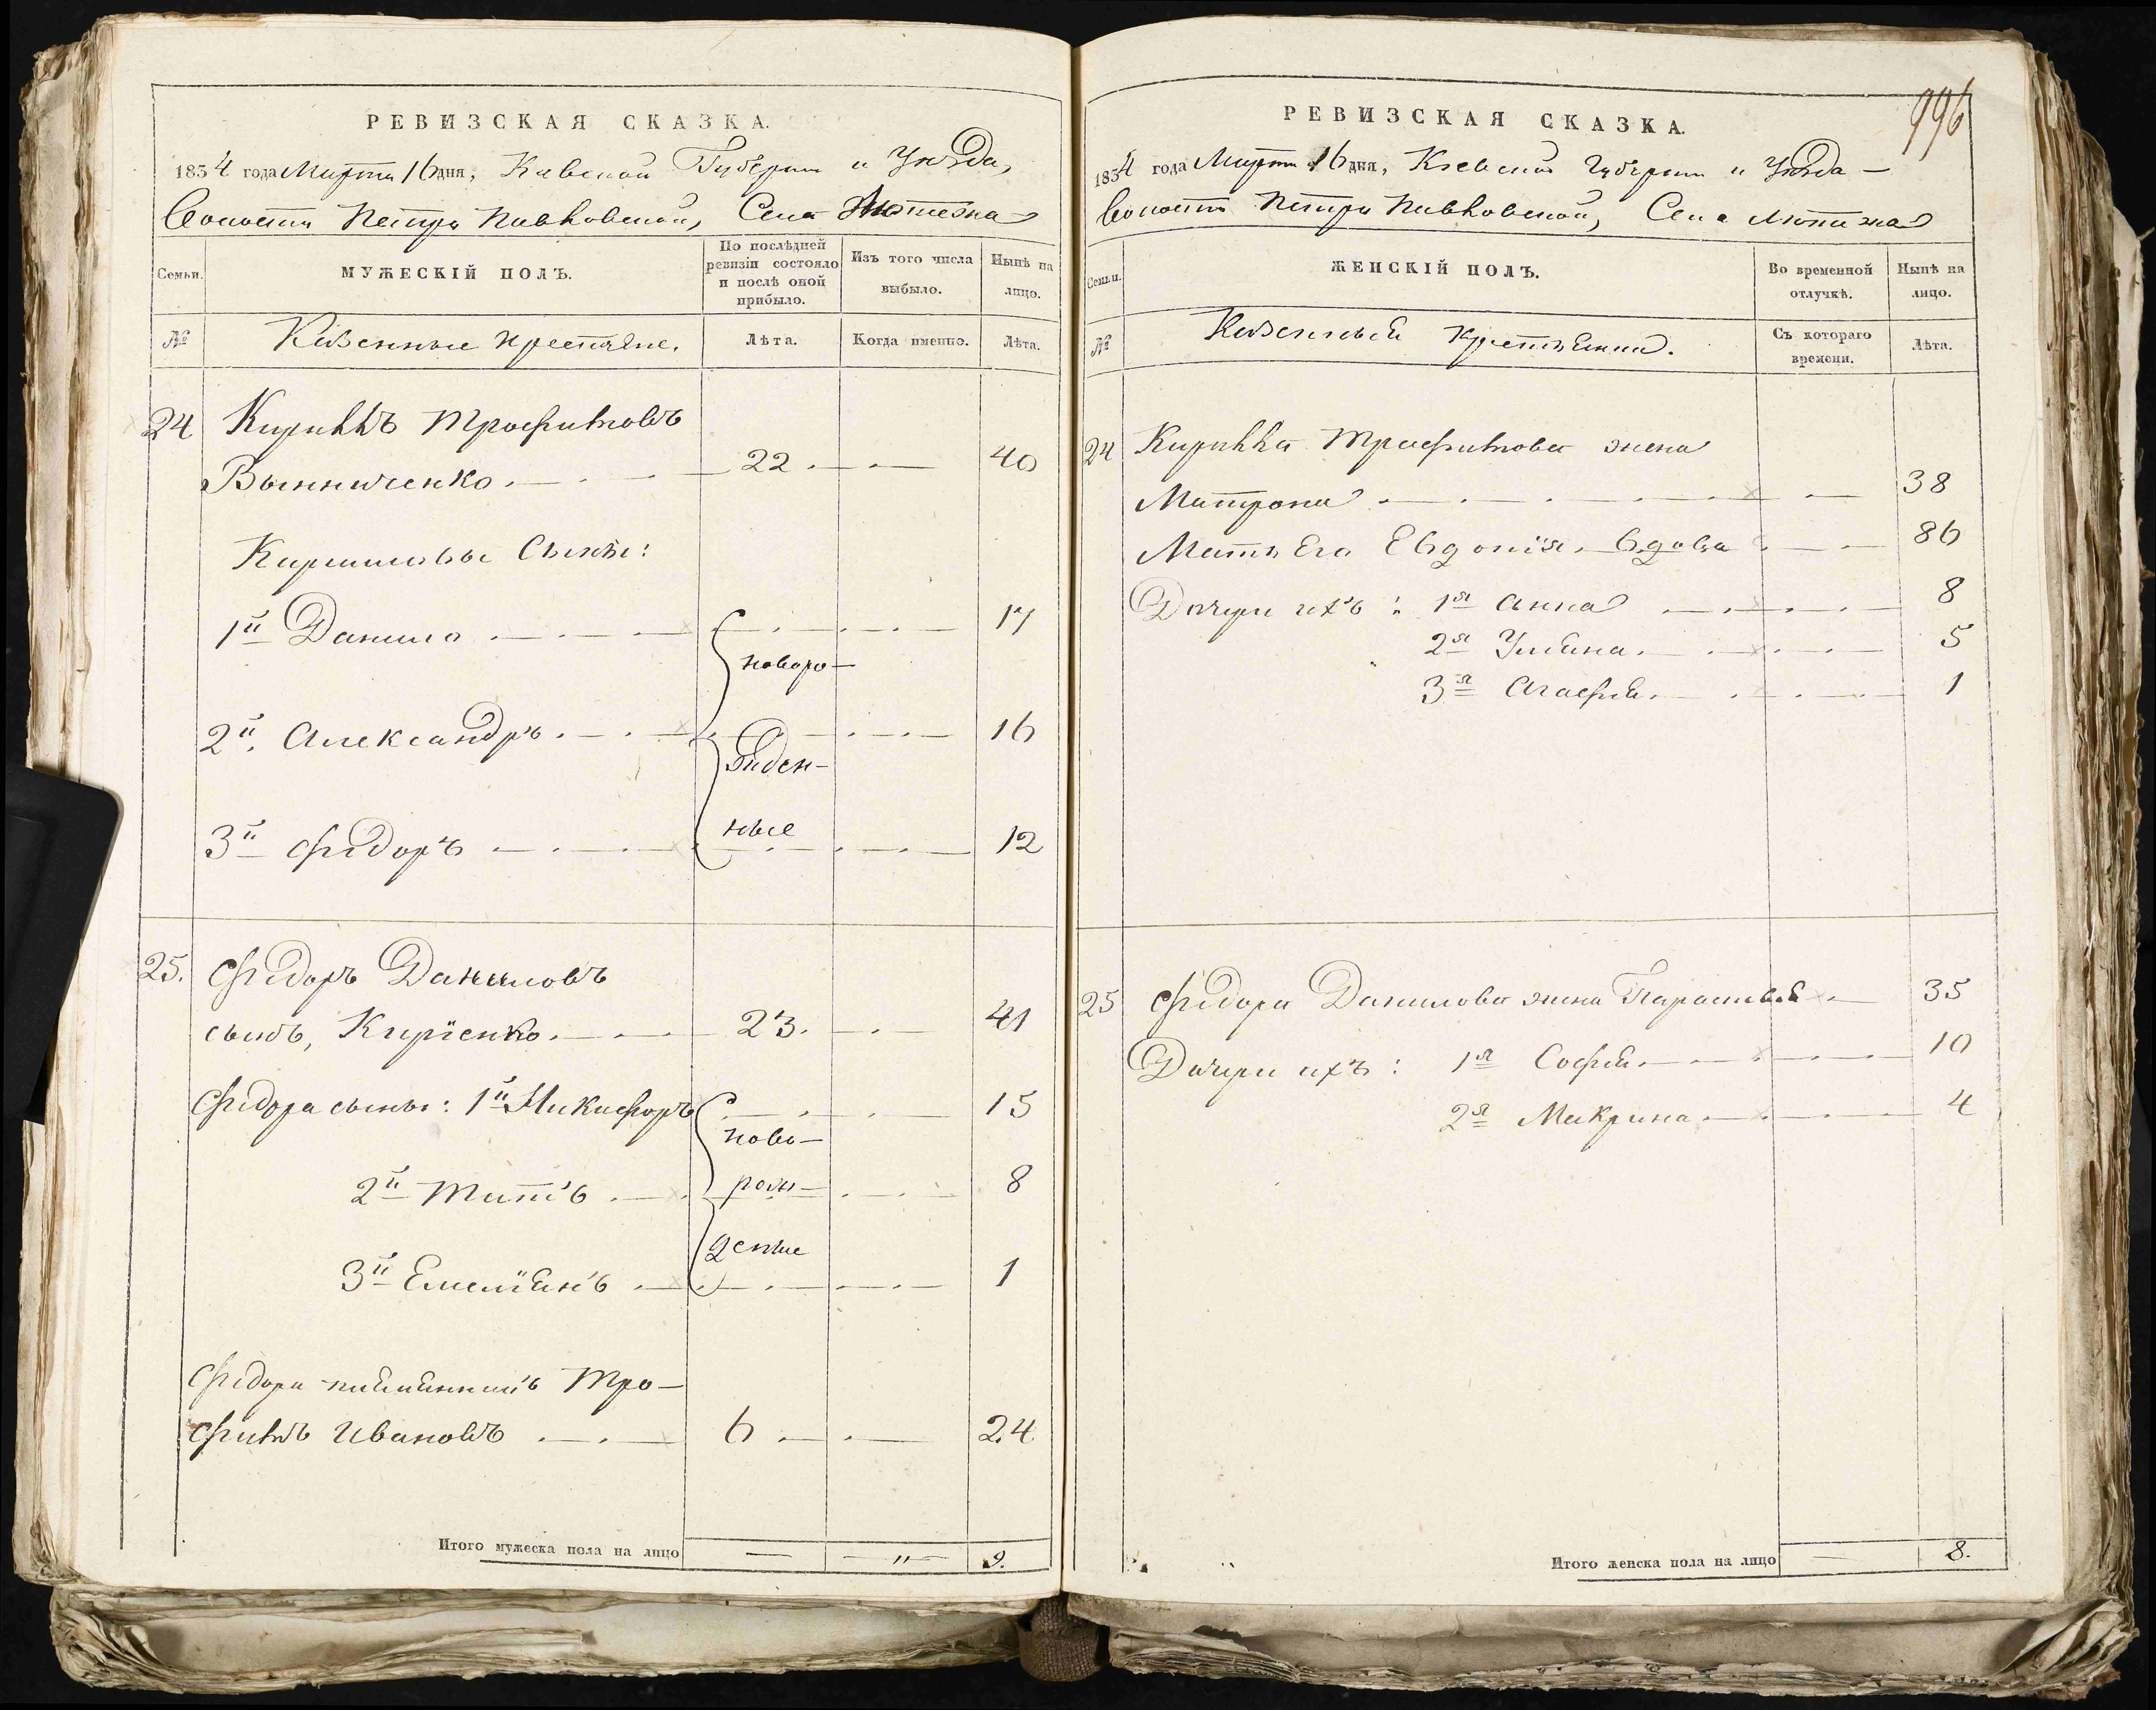 РЕВИЗСКАЯ СКАЗКА.
1854 года Марта 16 дня, Киевской Губернии и Уѣзда,
Волости Петро Павловской, Села Лютежа
Семьи.
МУЖЕСКІЙ ПОЛЪ.
По послѣдней ревизіи состояло и послѣ оной прибыло.
Изъ того числа выбыло.
Нынѣ на лицо.
№
Казенные крестьяне.
Лѣта.
Когда именно.
Лѣта.
24 Кириллъ Трофимовъ
Винниченко. 22. 40
Кирилловы Сыны:
1й Данило 17
новоро-
2й Александръ 16
жден-
3й Фидоръ ные 12
25. Фидоръ Даниловъ
сынъ, Киріенко. 23. 41
Фидора сыны: 1й Никифоръ 15
ново-
2й Титъ рож- 8
деные
3й Емеліянъ 1
Фидора племянникъ Тро-
фимъ Ивановъ 6 24
Итого мужеска пола на лицо — — „ — 9.
996
РЕВИЗСКАЯ СКАЗКА.
1854 года Марта 16 дня, Кіевской Губерніи и Уѣзда —
Волости Петро Павловской, Села Лютежа
Семьи.
ЖЕНСКІЙ ПОЛЪ.
Во временной отлучкѣ.
Нынѣ на лицо.
№
Казенныя крестьянки.
Съ котораго времени.
Лѣта.
24 Кирилла Трофимова жена
Матрона 38
Мать Его Евдокія, вдова 86
Дочери ихъ: 1я Анна 8
2я Ульяна. 5
3я Агафія. 1
25 Фидора Данилова жена Параскева 35
Дочери ихъ: 1я Софія 10
2я Макрина 4
Итого женска пола на лицо — 8.